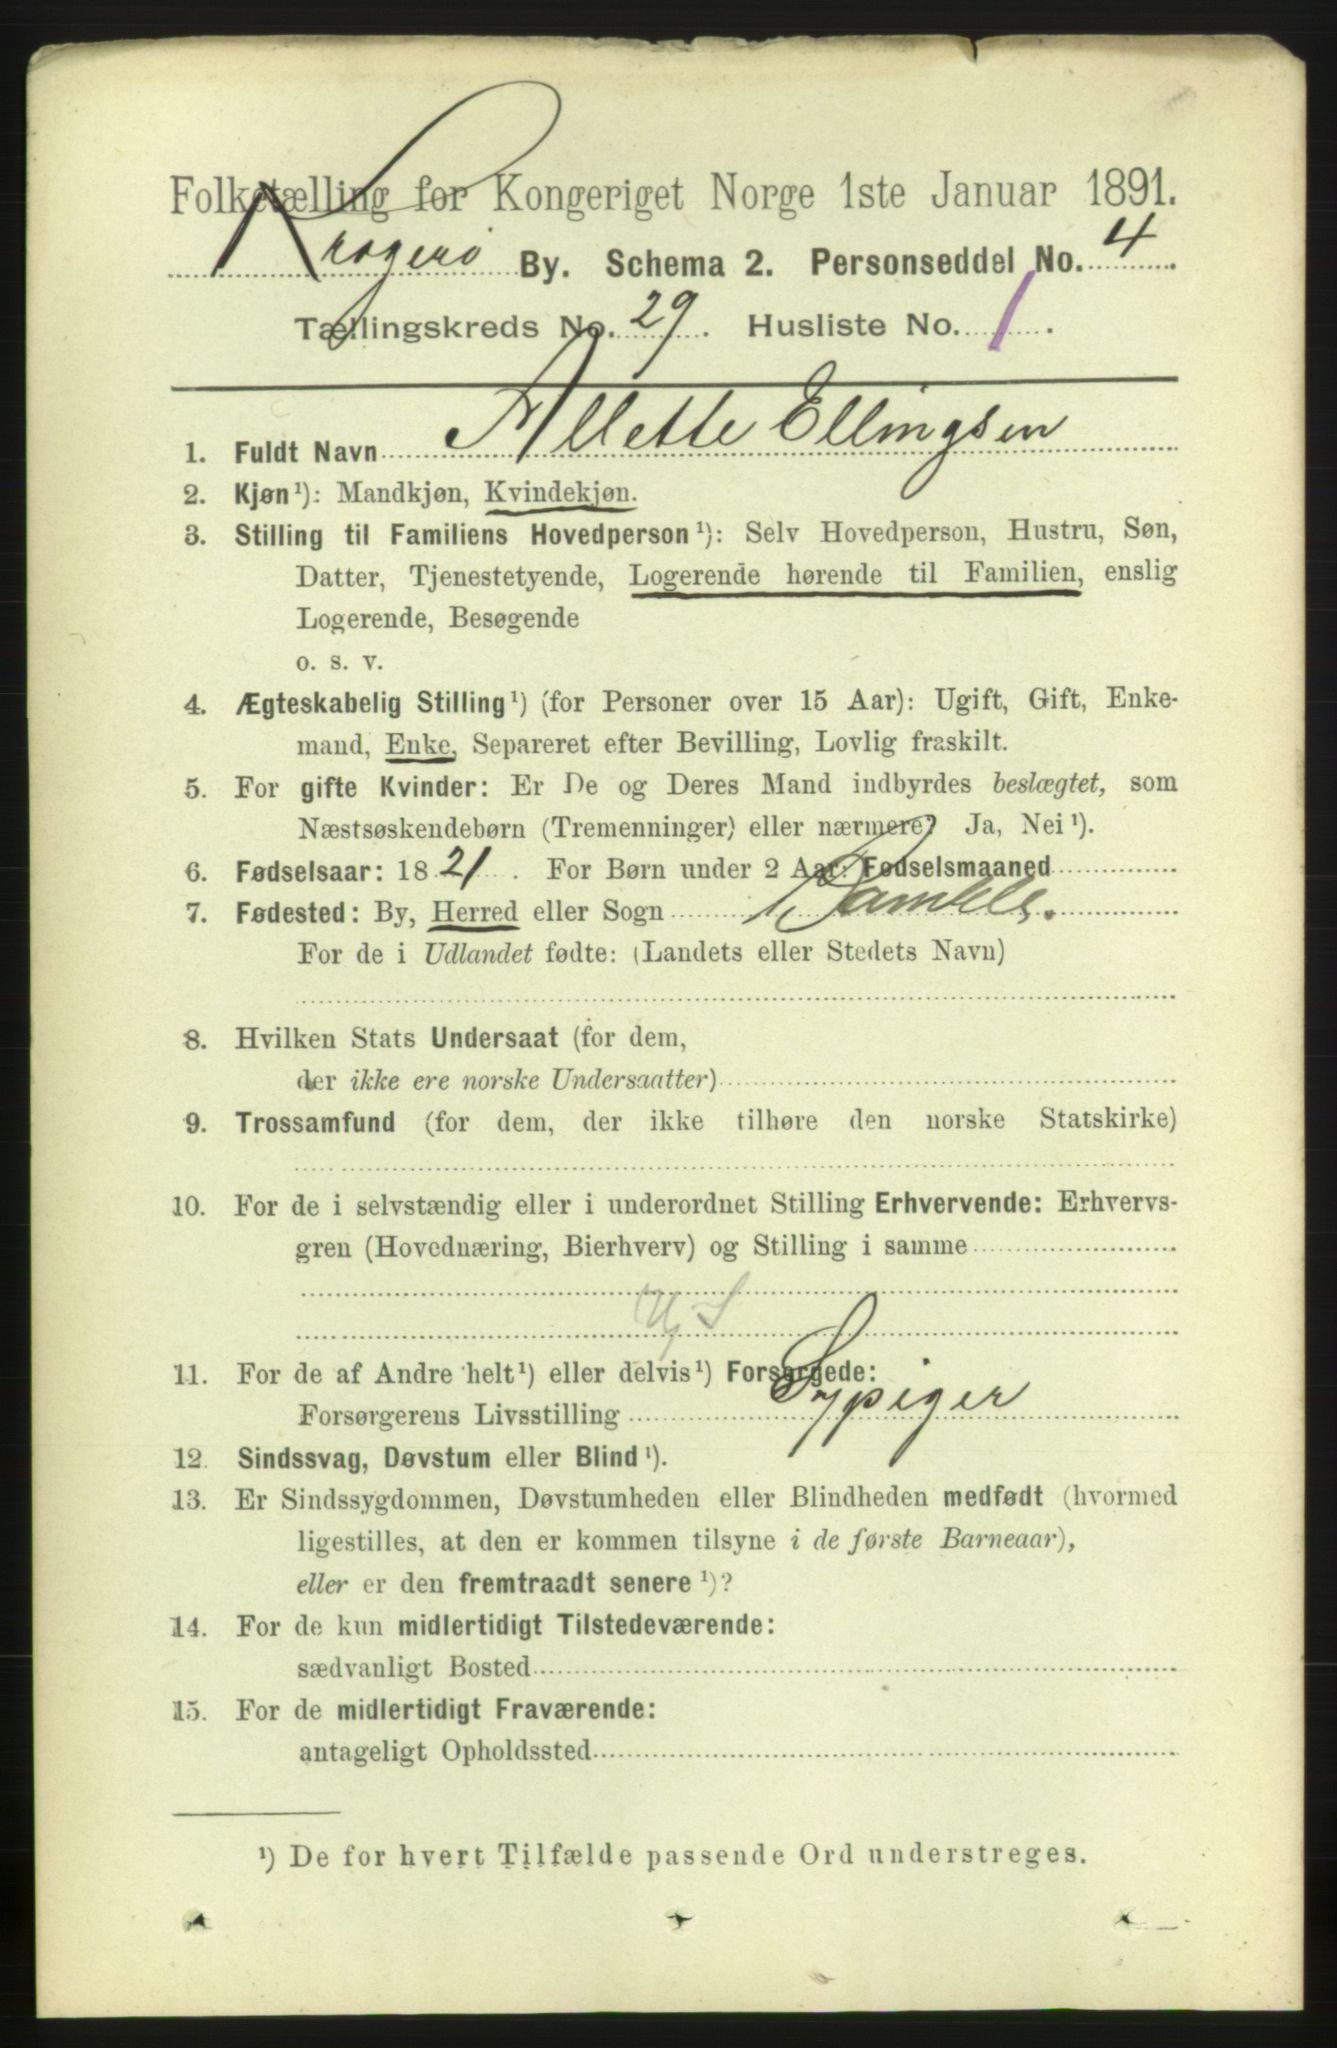 Folketælling for Kongeriget Norge 1ste Januar 1891.
Kragerø By. Schema 2. Personseddel No. 4
Tællingskreds No. 29. Husliste No. 1.
1. Fuldt Navn Allette Ellingsen
2. Kjøn¹): Mandkjøn, Kvindekjøn.
3. Stilling til Familiens Hovedperson¹): Selv Hovedperson, Hustru, Søn,
Datter, Tjenestetyende, Logerende hørende til Familien, enslig
Logerende, Besøgende
o. s. v.
4. Ægteskabelig Stilling¹) (for Personer over 15 Aar): Ugift, Gift, Enke-
mand, Enke, Separeret efter Bevilling, Lovlig fraskilt.
5. For gifte Kvinder: Er De og Deres Mand indbyrdes beslægtet, som
Næstsøskendebørn (Tremenninger) eller nærmere? Ja, Nei¹).
6. Fødselsaar: 1821. For Børn under 2 Aar: Fødselsmaaned
7. Fødested: By, Herred eller Sogn Bamble.
For de i Udlandet fødte: (Landets eller Stedets Navn)
8. Hvilken Stats Undersaat (for dem,
der ikke ere norske Undersaatter)
9. Trossamfund (for dem, der ikke tilhøre den norske Statskirke)
10. For de i selvstændig eller i underordnet Stilling Erhvervende: Erhvervs-
gren (Hovednæring, Bierhverv) og Stilling i samme
11. For de af Andre helt¹) eller delvis¹) Forsørgede:
Forsørgerens Livsstilling Sypiger
12. Sindssvag, Døvstum eller Blind¹).
13. Er Sindssygdommen, Døvstumheden eller Blindheden medfødt (hvormed
ligestilles, at den er kommen tilsyne i de første Barneaar),
eller er den fremtraadt senere¹)?
14. For de kun midlertidigt Tilstedeværende:
sædvanligt Bosted
15. For de midlertidigt Fraværende:
antageligt Opholdssted
¹) De for hvert Tilfælde passende Ord understreges.